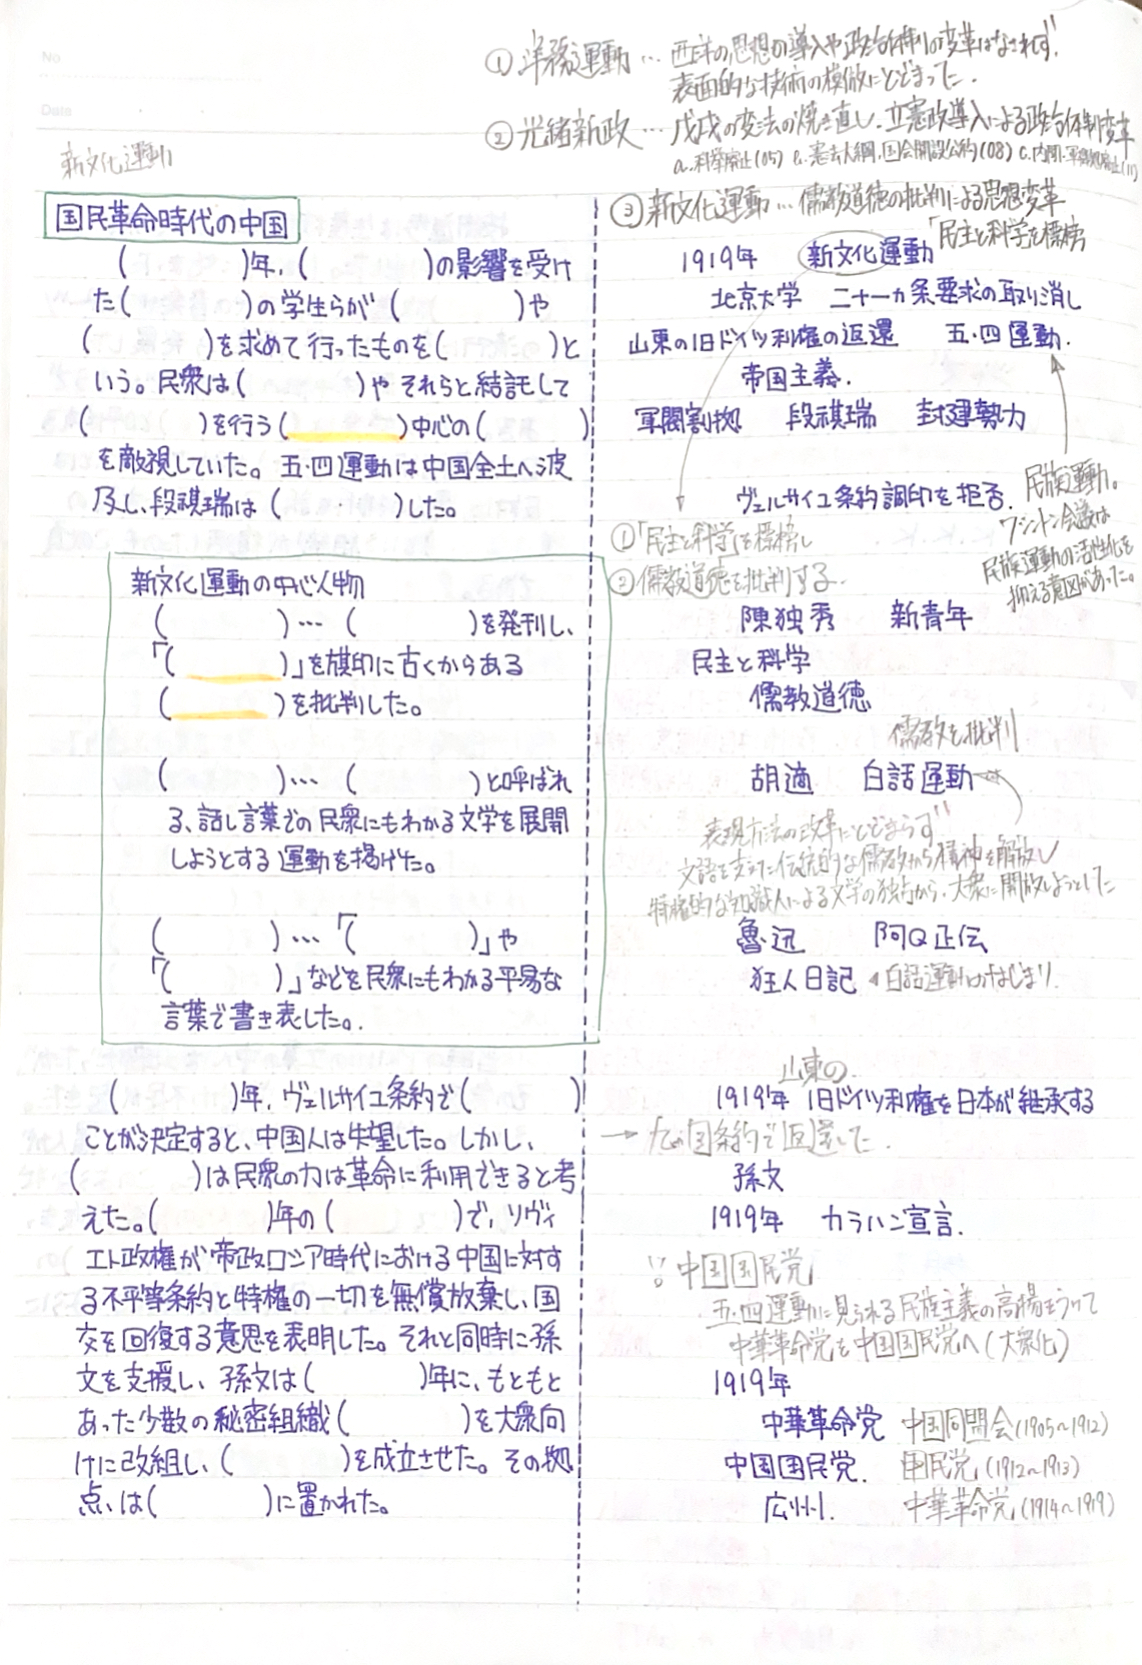 No
Date
新文化運動
① 洋務運動 … 西洋の思想の導入や政治体制の変革はなされず、
表面的な技術の模倣にとどまった.
② 光緒新政 … 戊戌の変法の焼き直し. 立憲政導入による政治体制変革
a. 科挙廃止(05) b. 憲法大綱、国会開設公約(08) c. 内閣・軍機処廃止(11)
国民革命時代の中国
(　　　)年、(　　　)の影響を受け
た(　　　)の学生らが(　　　)や
(　　　)を求めて行ったものを(　　　)と
いう。民衆は(　　　)やそれらと結託して
(　　　)を行う(　　　)中心の(　　　)
を敵視していた。五・四運動は中国全土へ波
及し、段祺瑞は(　　　)した。
新文化運動の中心人物
(　　　)…(　　　)を発刊し、
「(　　　)」を旗印に古くからある
(　　　)を批判した。
(　　　)…(　　　)と呼ばれ
る、話し言葉での民衆にもわかる文学を展開
しようとする運動を掲げた。
(　　　)…「(　　　)」や
「(　　　)」などを民衆にもわかる平易な
言葉で書き表した。
(　　　)年、ヴェルサイユ条約で(　　　)
ことが決定すると、中国人は失望した。しかし、
(　　　)は民衆の力は革命に利用できると考
えた。(　　　)年の(　　　)で、ソヴィ
エト政権が帝政ロシア時代における中国に対す
る不平等条約と特権の一切を無償放棄し、国
交を回復する意思を表明した。それと同時に孫
文を支援し、孫文は(　　　)年に、もともと
あった少数の秘密組織(　　　)を大衆向
けに改組し、(　　　)を成立させた。その拠
点は(　　　)に置かれた。
③ 新文化運動 … 儒教道徳の批判による思想変革
「民主と科学」を標榜
1919年　新文化運動
北京大学　二十一ヵ条要求の取り消し
山東の旧ドイツ利権の返還　五・四運動.
帝国主義.
軍閥割拠　段祺瑞　封建勢力
ヴェルサイユ条約調印を拒否.
民族運動。
ワシントン会議は
民族運動の活性化を
抑える意図があった。
①「民主と科学」を標榜し
② 儒教道徳を批判する.
陳独秀　新青年
民主と科学
儒教道徳
儒教を批判
胡適　白話運動
表現方法の改革にとどまらず
文語を支えた伝統的な儒教から精神を解放し
特権的な知識人による文学の独占から、大衆に開放しようとした
魯迅　阿Q正伝
狂人日記 ◂白話運動のはじまり.
山東の
1919年　旧ドイツ利権を日本が継承する
→ 九カ国条約で返還した.
孫文
1919年　カラハン宣言.
中国国民党
五・四運動に見られる民族主義の高揚をうけて
中華革命党を中国国民党へ(大衆化)
1919年
中華革命党　中国同盟会(1905〜1912)
中国国民党.　国民党(1912〜1913)
広州.　中華革命党(1914〜1919)